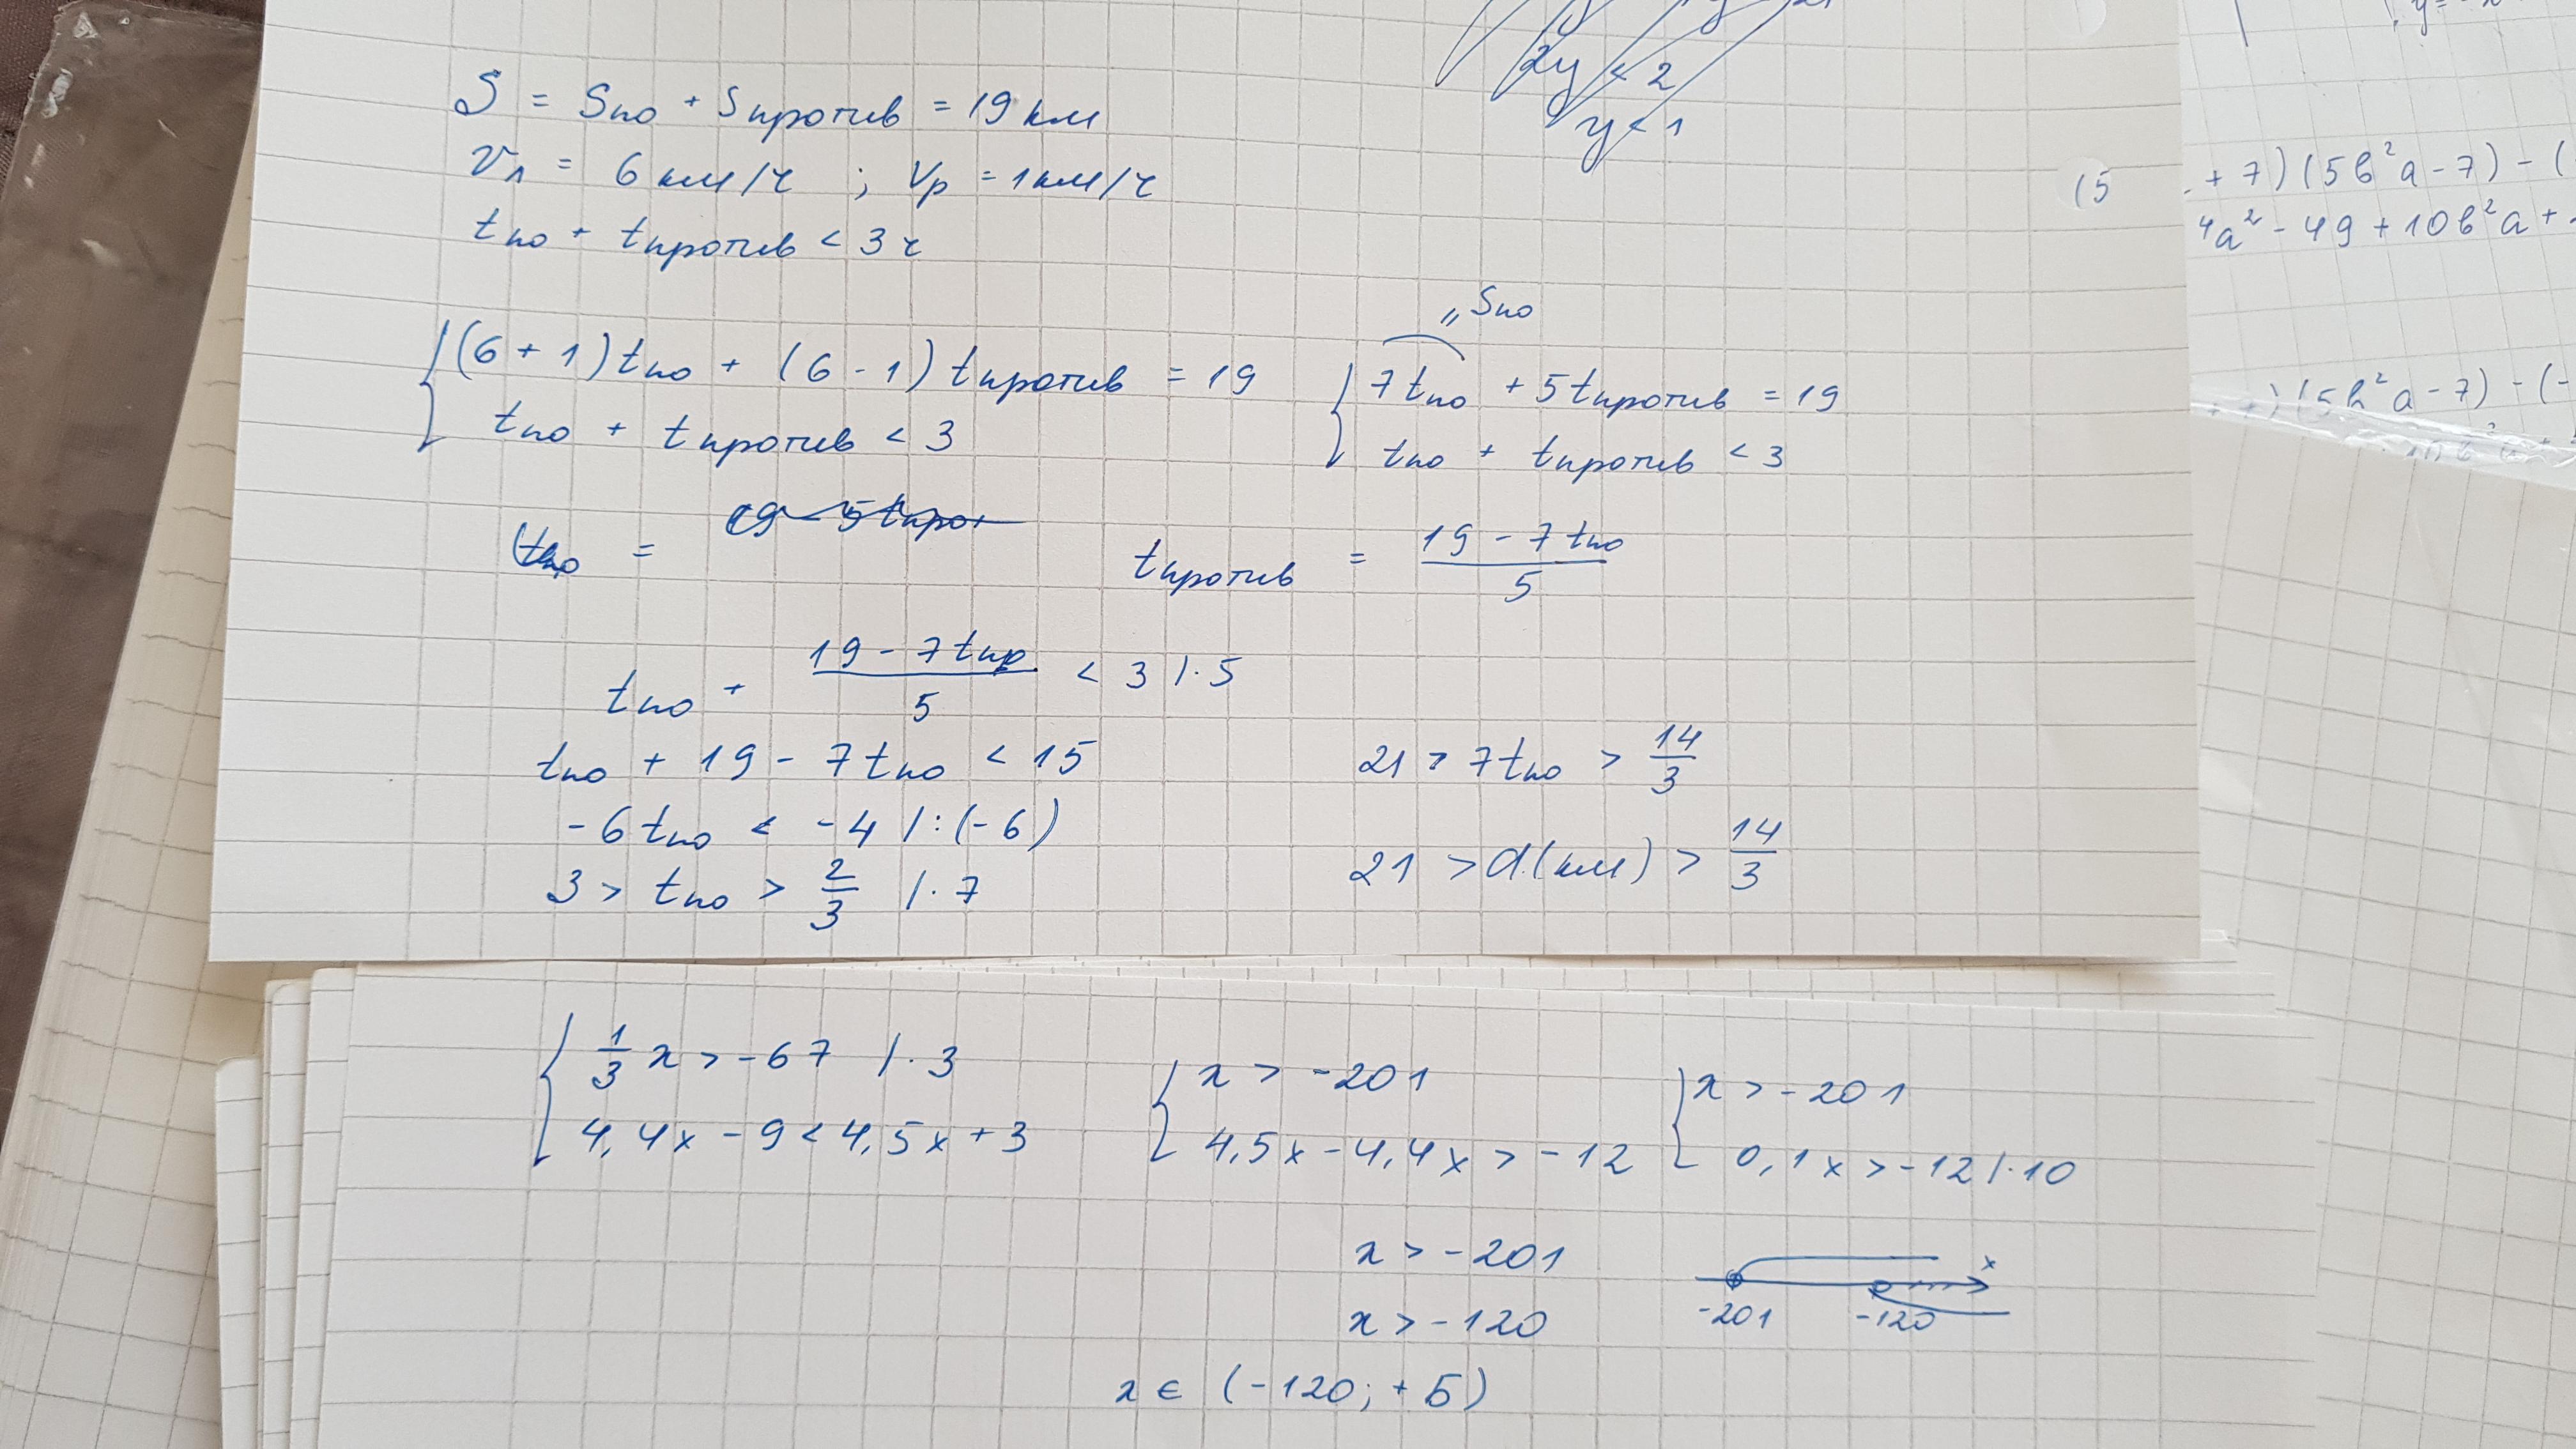 2y < 2
y < 1
S = Sпо + Sпротив = 19 км
vл = 6 км/ч ; Vр = 1 км/ч
tпо + tпротив < 3 ч
(5
+ 7)(5b²a - 7) - (
4a² - 49 + 10b²a +
"Sпо
{(6 + 1)tпо + (6 - 1)tпротив = 19
tпо + tпротив < 3
{7tпо + 5tпротив = 19
tпо + tпротив < 3
)(5b²a - 7) - (-
tпо = 19 - 5tпрот
tпротив = (19 - 7tпо)/5
tпо + (19 - 7tпр)/5 < 3 |·5
tпо + 19 - 7tпо < 15
-6tпо < -4 |:(-6)
3 > tпо > 2/3 |·7
21 > 7tпо > 14/3
21 > d(км) > 14/3
{1/3 x > -67 |·3
4,4x - 9 < 4,5x + 3
{x > -201
4,5x - 4,4x > -12
{x > -201
0,1x > -12 |·10
x > -201
x > -120
x
-201 -120
x ∈ (-120; + Б)